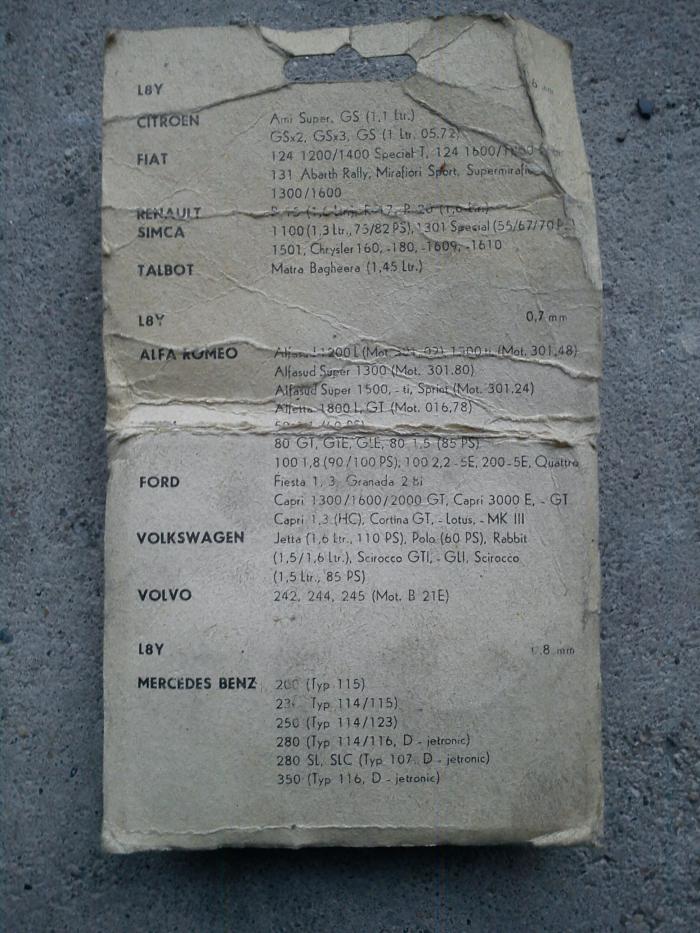 L8Y
CITROEN Ami Super, GS (1,1 Ltr.)
GSx2, GSx3, GS (1 Ltr. 05.72)
FIAT 124 1200/1400 Special T, 124 1600/
131 Abarth Rally, Mirafiori Sport,
1300/1600
RENAULT
SIMCA 1100 (1,3 Ltr., 75/82 PS), 1301 Special (55/67/70
1501, Chrysler 160, -180, -1609, -1610
TALBOT Matra Bagheera (1,45 Ltr.)
L8Y 0,7 mm
ALFA ROMEO (Mot. 301.48)
Alfasud Super 1300 (Mot. 301.80)
Alfasud Super 1500, - ti, Sprint (Mot. 301.24)
Alfetta 1800 L, GT (Mot. 016.78)
80 GT, GTE, GLE, 80 1,5 (85 PS)
100 1,8 (90/100 PS), 100 2,2 - 5E, 200 - 5E, Quattro
FORD Fiesta 1, 3, Granada 2
Capri 1300/1600/2000 GT, Capri 3000 E, - GT
Capri 1,3 (HC), Cortina GT, - Lotus, - MK III
VOLKSWAGEN Jetta (1,6 Ltr., 110 PS), Polo (60 PS), Rabbit
(1,5/1,6 Ltr.), Scirocco GTI, - GLI, Scirocco
(1,5 Ltr., 85 PS)
VOLVO 242, 244, 245 (Mot. B 21E)
L8Y 0,8 mm
MERCEDES BENZ 200 (Typ 115)
(Typ 114/115)
250 (Typ 114/123)
280 (Typ 114/116, D - jetronic)
280 SL, SLC (Typ 107, D - jetronic)
350 (Typ 116, D - jetronic)